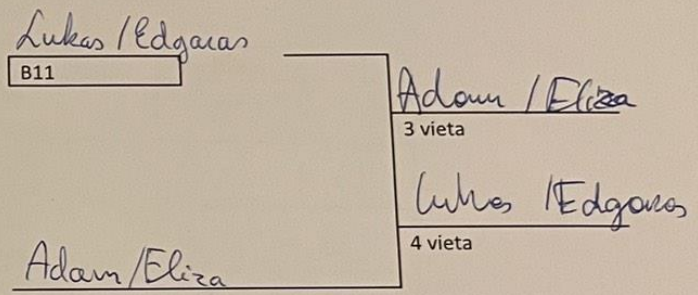 Lukas / Edgaras
B11
Adam / Eliza
3 vieta
Lukas / Edgaras
4 vieta
Adam / Eliza